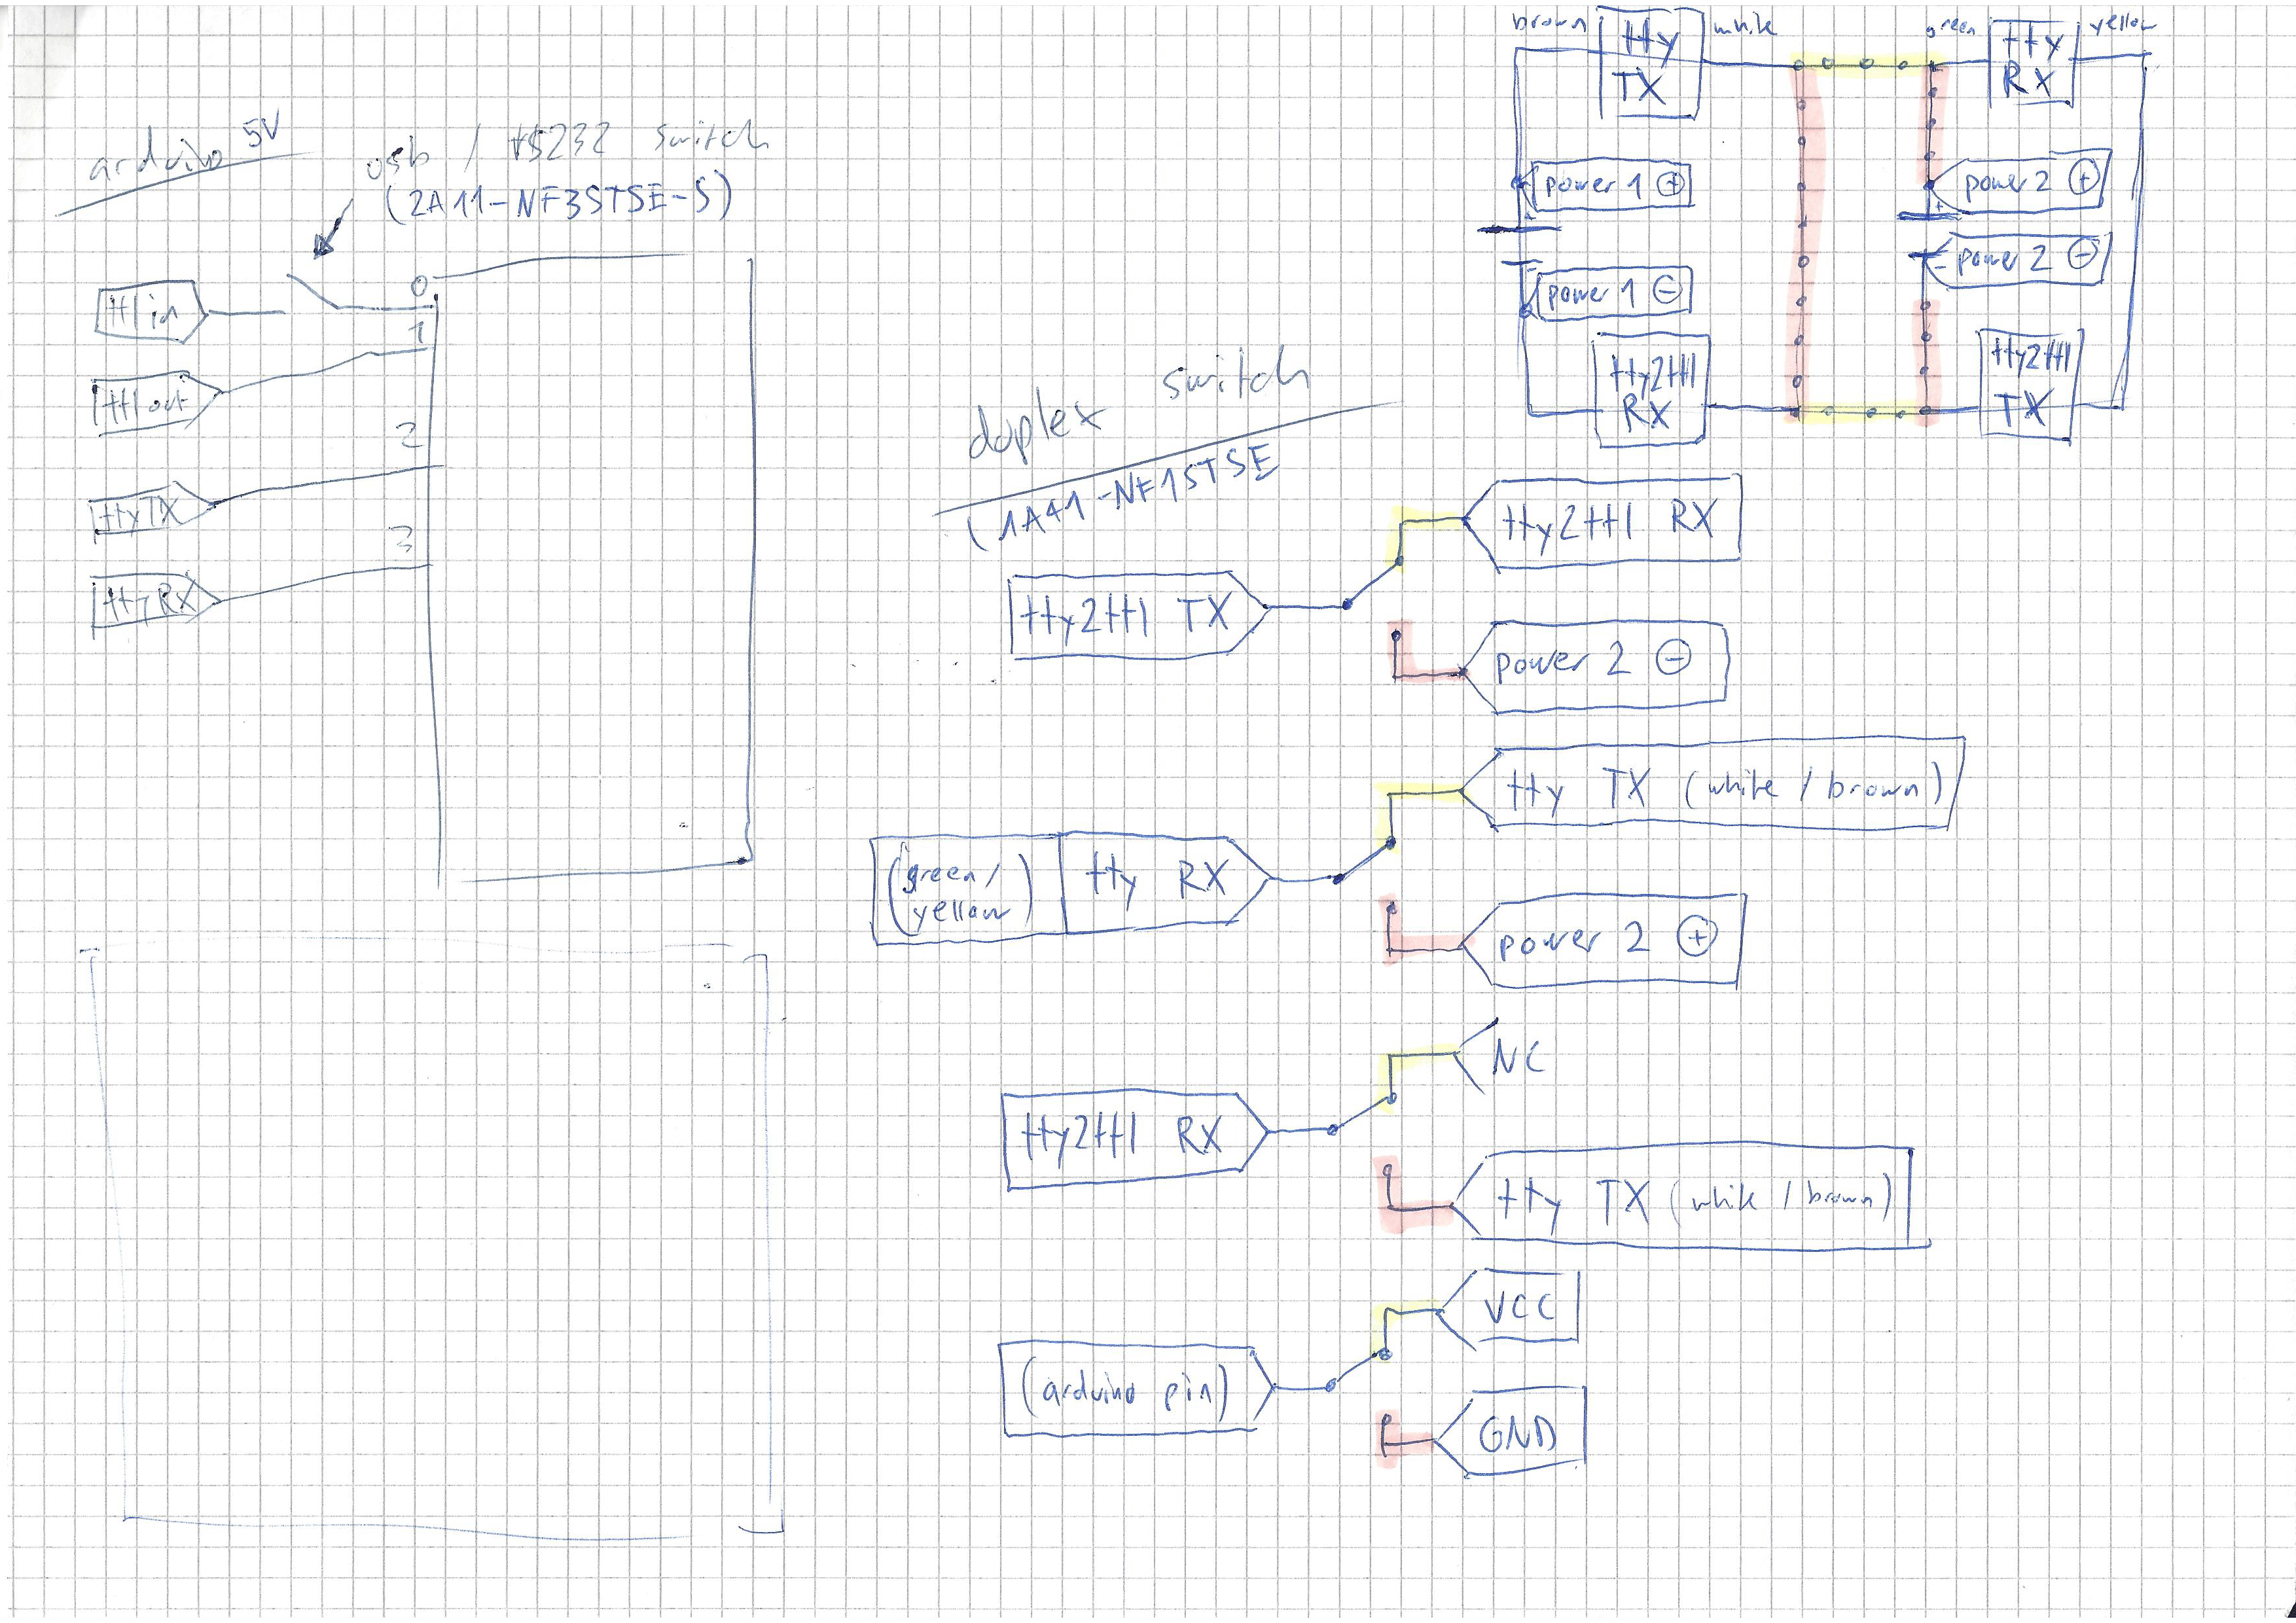 arduino 5V
usb / rs232 switch
(2A11-NF3STSE-5)
ttl in
0
1
ttl out
2
tty TX
3
tty RX
brown
tty
TX
white
green
tty
RX
yellow
power 1 ⊕
+
power 2 ⊕
+
-
power 1 ⊖
-
power 2 ⊖
tty2ttl
RX
tty2ttl
TX
duplex switch
(1A41-NF1STSE
tty2ttl TX
tty2ttl RX
power 2 ⊖
(green/
yellow)
tty RX
tty TX (white / brown)
power 2 ⊕
tty2ttl RX
NC
tty TX (white / brown)
(arduino pin)
VCC
GND